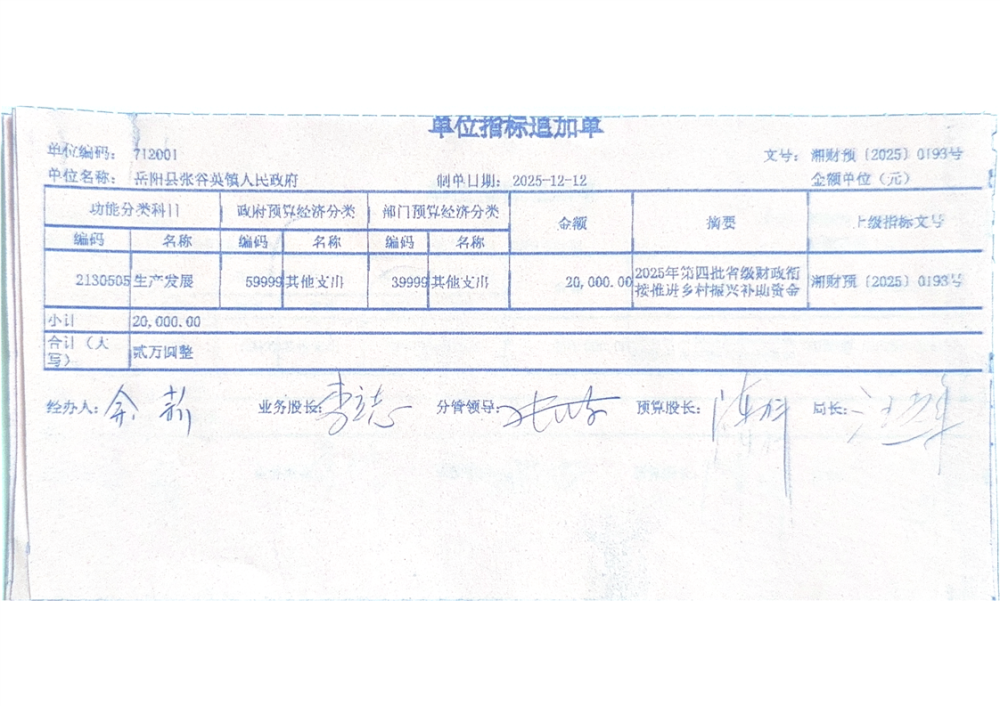 单位指标追加单
单位编码： 712001 文号： 湘财预〔2025〕0193号
单位名称： 岳阳县张谷英镇人民政府 制单日期： 2025-12-12 金额单位（元）
功能分类科目 政府预算经济分类 部门预算经济分类 金额 摘要 上级指标文号
编码 名称 编码 名称 编码 名称
2130505 生产发展 59999 其他支出 39999 其他支出 20,000.00 2025年第四批省级财政衔 湘财预〔2025〕0193号
接推进乡村振兴补助资金
小计 20,000.00
合计（大 贰万圆整
写）
经办人： 业务股长： 李志 分管领导： 预算股长： 局长：